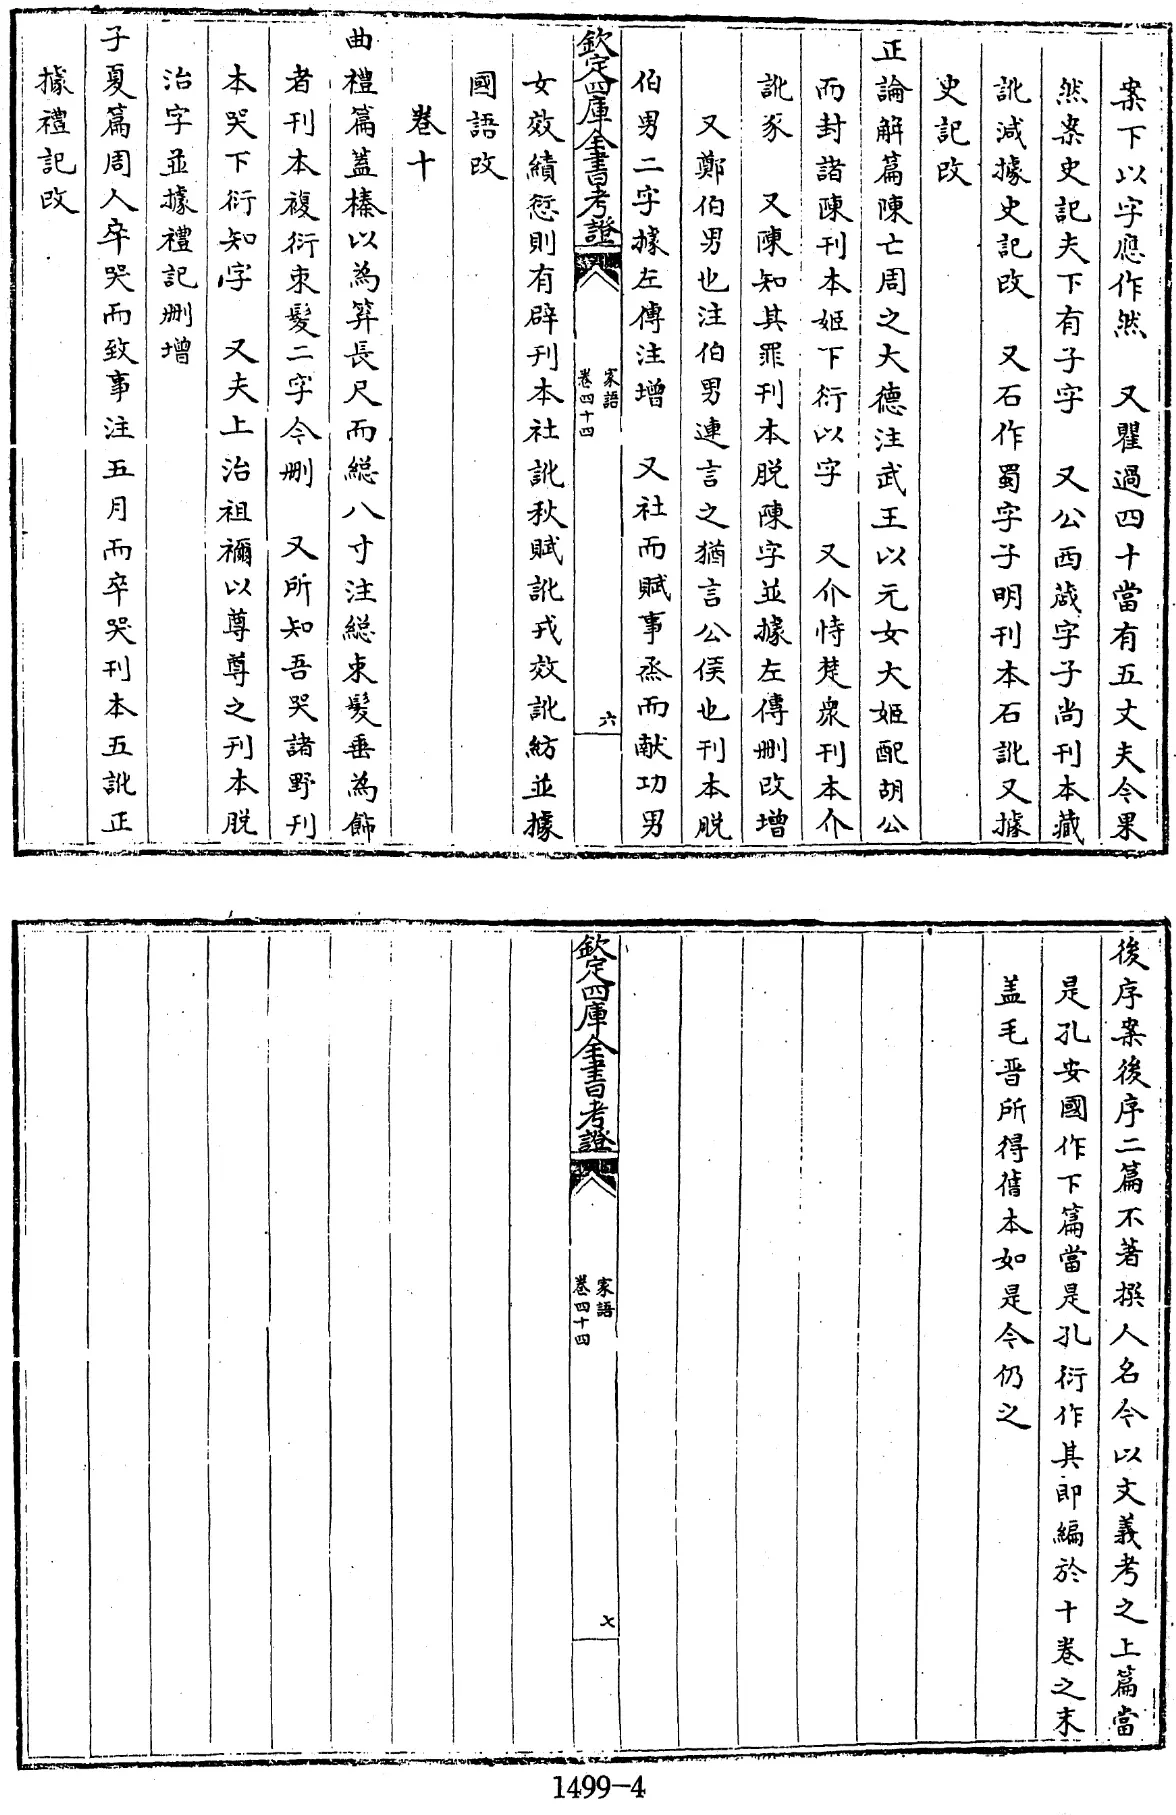 案下以字應作然　又瞿過四十當有五丈夫今果
然案史記夫下有子字　又公西蒧字子尚刊本藏
訛減據史記改　又石作蜀字子明刊本石訛又據
史記改
正論解篇陳亡周之大德注武王以元女大姬配胡公
而封諸陳刊本姬下衍以字　又介恃楚衆刊本介
訛豕　又陳知其罪刊本脱陳字並據左傳刪改增
又鄭伯男也注伯男連言之猶言公侯也刊本脱
伯男二字據左傳注增　又社而賦事烝而献功男
欽定四庫全書考證
家語
卷四十四
六
女效績愆則有辟刊本社訛秋賦訛戎效訛紡並據
國語改
卷十
曲禮篇蓋榛以為筓長尺而緫八寸注緫束髮垂為飾
者刊本複衍束髮二字今刪　又所知吾哭諸野刊
本哭下衍知字　又夫上治祖禰以尊尊之刊本脱
治字並據禮記刪增
子夏篇周人卒哭而致事注五月而卒哭刊本五訛正
據禮記改
後序案後序二篇不著撰人名今以文義考之上篇當
是孔安國作下篇當是孔衍作其即編於十卷之末
盖毛晋所得舊本如是今仍之
欽定四庫全書考證
家語
卷四十四
七
1499-4